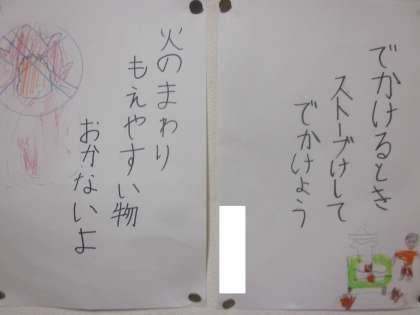 でかけるとき
ストーブけして
でかけよう
火のまわり
もえやすい物
おかないよ